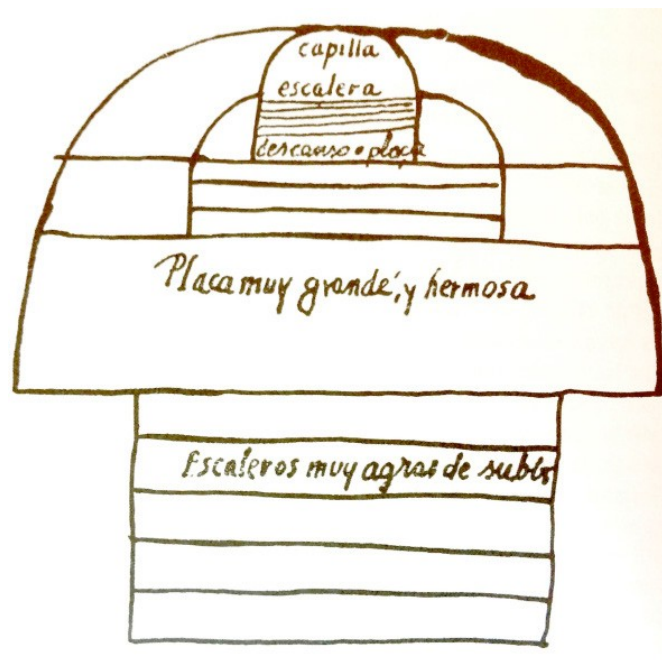 capilla
escalera
descanso o plaça
Placa muy grande, y hermosa
Escaleros muy agras de subir